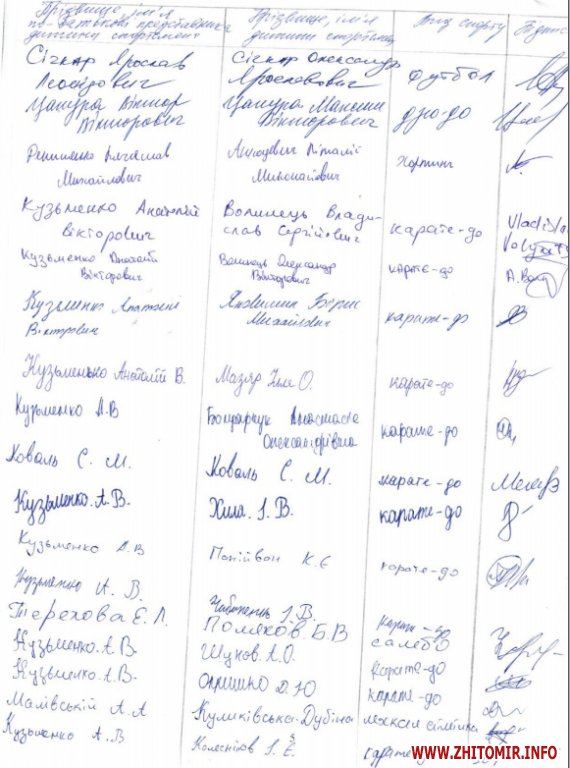 Прізвище, ім'я
по-батькові представника
дитини спортсмена
Прізвище, ім'я
дитини спортсмена
Вид спорту
Підпис
Січкар Ярослав
Леонідович
Січкар Олександр
Ярославович
футбол
Цацура Віктор
Вікторович
Цацура Максим
Вікторович
дзю-до
Михайлович
Віталій
Миколайович
хортинг
Кузьменко Анатолій
Вікторович
Волинець Влади-
слав Сергійович
карате-до
Vladislav
Кузьменко Анатолій
Вікторович
Волинець Олександр
Вікторович
карате-до
Кузьменко Анатолій
Вікторович
Борис
Михайлович
карате-до
Кузьменько Анатолій В.
Мазяр О.
карате-до
Кузьменко А.В
Бондарчук Анастасія
Олександрівна
карате-до
Коваль С. М.
Коваль С. М.
карате-до
Кузьменко А.В.
Хила І.В.
карате-до
Кузьменко А.В
К.Є
карате-до
Кузьменко А.В.
І.В.
карате-до
Терехова Е.Л.
Поляков Б.В
самбо
Кузьменко А.В.
Шунов А.О.
карате-до
Кузьменко А.В.
Опришко Д.Ю
карате-до
Малівській А.А
Куликівська-Дубіна
Кузьменко А.В
Колесніков
карате
WWW.ZHITOMIR.INFO